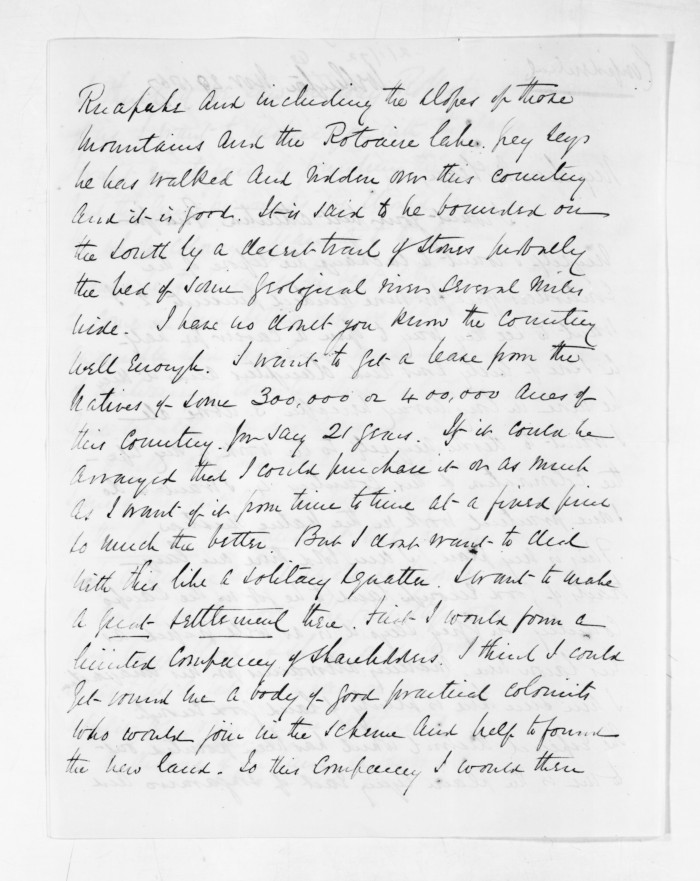 Ruapehu and including the slopes of those
mountains and the Rotoaira lake. Grey says
he has walked and ridden over this country
and it is good. It is said to be bounded on
the south by a desert tract of stones probably
the bed of some geological river several miles
wide. I have no doubt you know the country
well enough. I want to get a lease from the
Natives of some 300,000 or 400,000 acres of
this country. for say 21 years. If it could be
arranged that I could purchase it or as much
as I want of it from time to time at a fixed price
so much the better. But I dont want to deal
with this like a solitary squatter. I want to make
a great settlement there. First I would form a
limited Company of Shareholders. I think I could
get round me a body of good practical colonists
who would join in the scheme and help to found
the new land. To this Company I would then